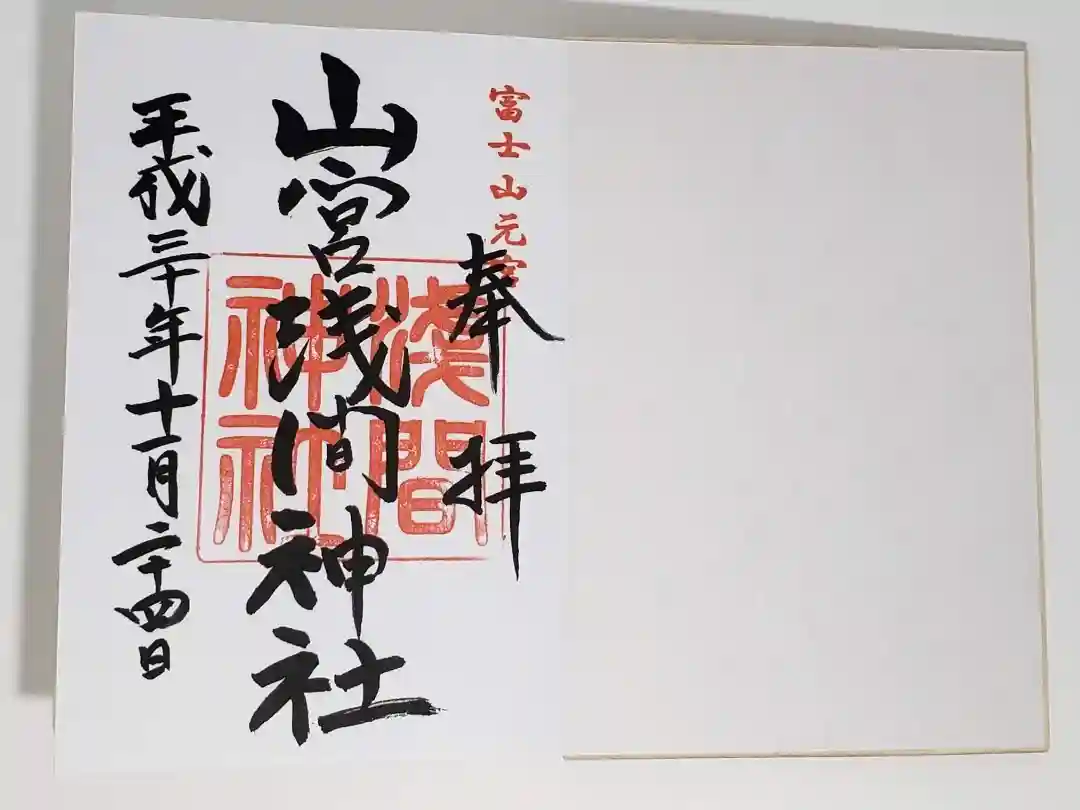 富士山元宮
奉拝
山宮浅間神社
淺間神社
平成三十年十一月二十四日